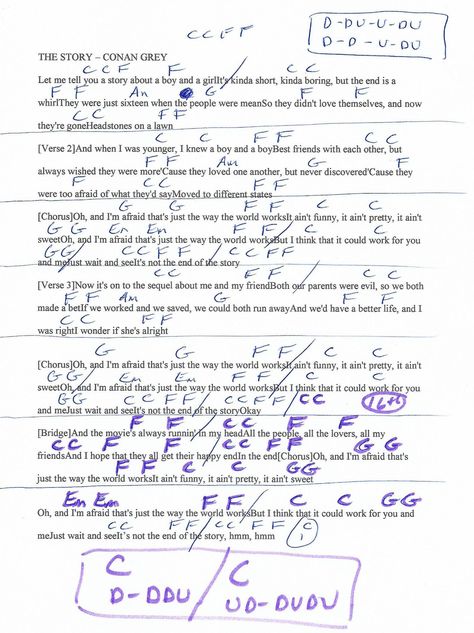 C C F F
D - DU - U - DU
D - D - U - DU
THE STORY – CONAN GREY
C C F F C C
Let me tell you a story about a boy and a girlIt's kinda short, kinda boring, but the end is a
F F Am G F
whirlThey were just sixteen when the people were meanSo they didn't love themselves, and now
C C F F
they're goneHeadstones on a lawn
C C F F C C
[Verse 2]And when I was younger, I knew a boy and a boyBest friends with each other, but
F F Am G F
always wished they were more'Cause they loved one another, but never discovered'Cause they
F C C F F
were too afraid of what they'd sayMoved to different states
G G F F / C C
[Chorus]Oh, and I'm afraid that's just the way the world worksIt ain't funny, it ain't pretty, it ain't
G G Em Em F F / C C
sweetOh, and I'm afraid that's just the way the world worksBut I think that it could work for you
G G / C C F F / C C F F
and meJust wait and seeIt's not the end of the story
C C F F C C
[Verse 3]Now it's on to the sequel about me and my friendBoth our parents were evil, so we both
F F Am G F
made a betIf we worked and we saved, we could both run awayAnd we'd have a better life, and I
F C C F F
was rightI wonder if she's alright
G G F F / C C
[Chorus]Oh, and I'm afraid that's just the way the world worksIt ain't funny, it ain't pretty, it ain't
G G Em Em F F / C C
sweetOh, and I'm afraid that's just the way the world worksBut I think that it could work for you
G G C C F F / C C F F / C C 16th
and meJust wait and seeIt's not the end of the storyOkay
F F / C C F F
[Bridge]And the movie's always runnin' in my headAll the people, all the lovers, all my
C C F F C C F F G G
friendsAnd I hope that they all get their happy endIn the end[Chorus]Oh, and I'm afraid that's
F F C C G G
just the way the world worksIt ain't funny, it ain't pretty, it ain't sweet
Em Em F F / C C G G
Oh, and I'm afraid that's just the way the world worksBut I think that it could work for you and
C C F F / C C F F / C 1
meJust wait and seeIt's not the end of the story, hmm, hmm
C / C
D - DDU / UD - DUDU